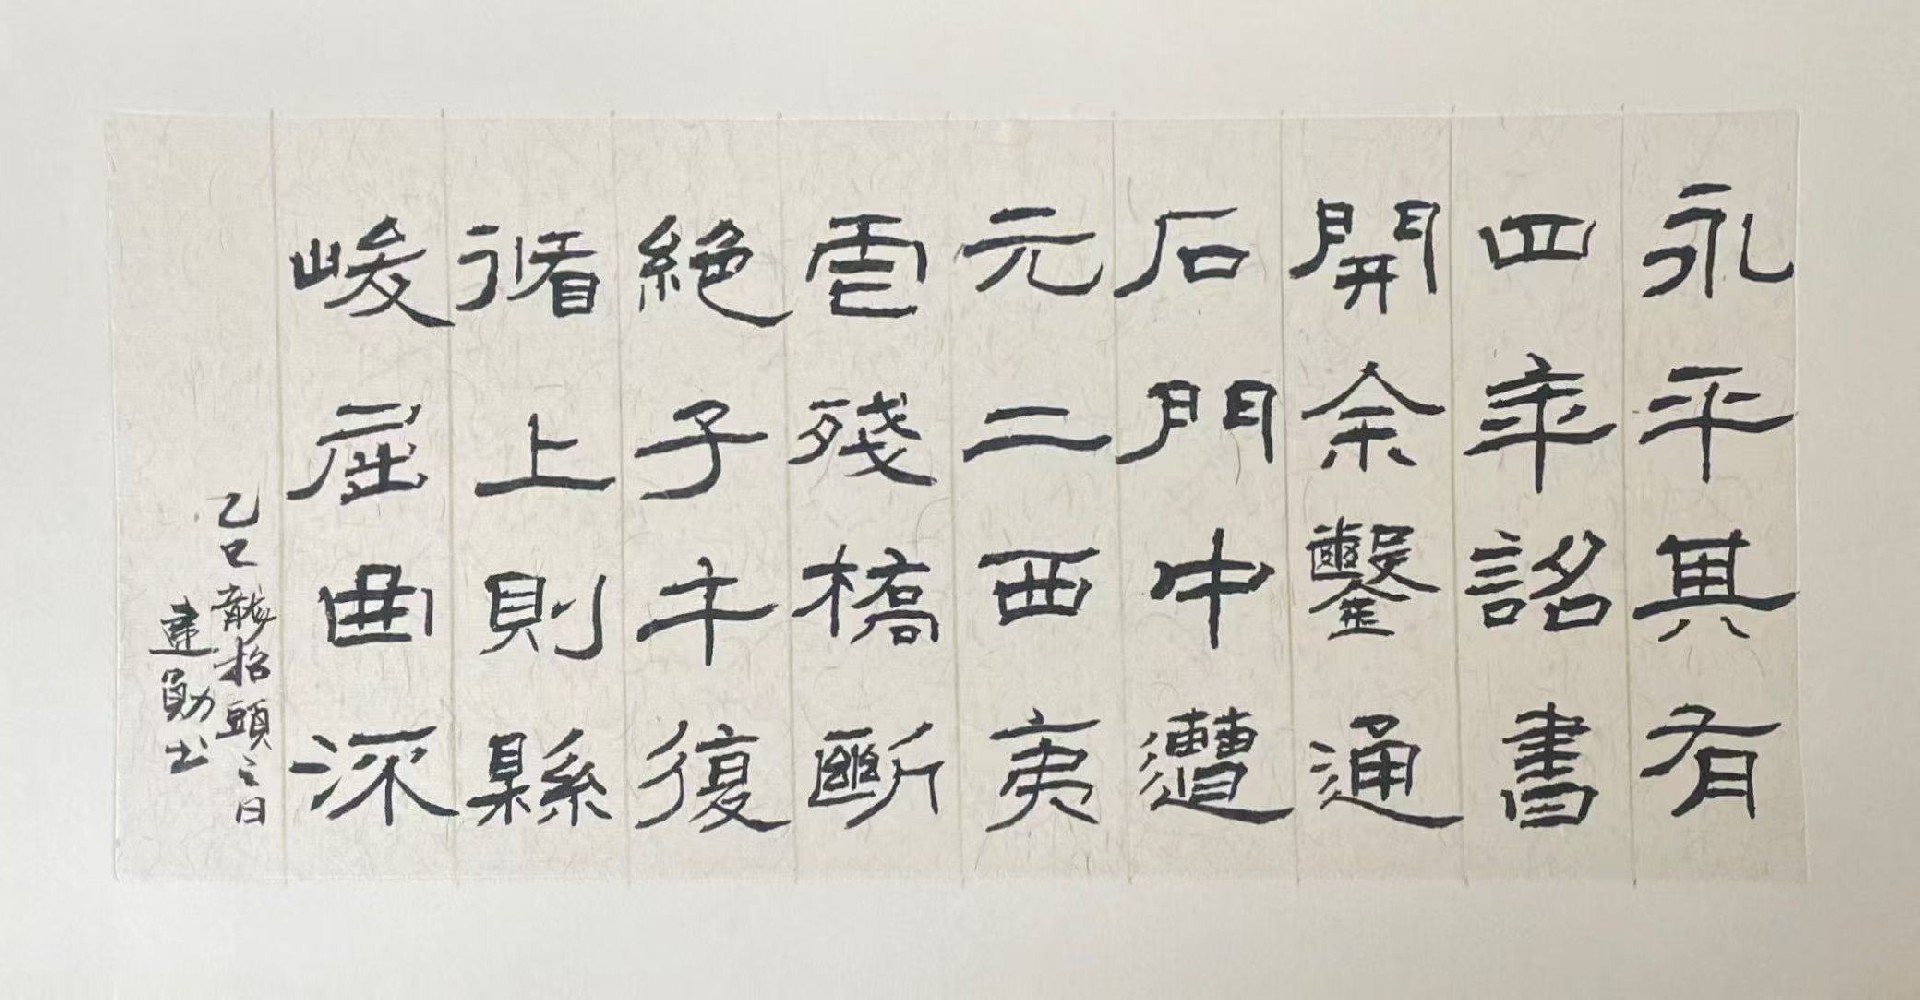 永平其有
四年詔書
開余鑿通
石門中遭
元二西夷
虐殘橋斷
絕子午復
循上則縣
峻屈曲流
乙巳龍抬頭之日
建勛书